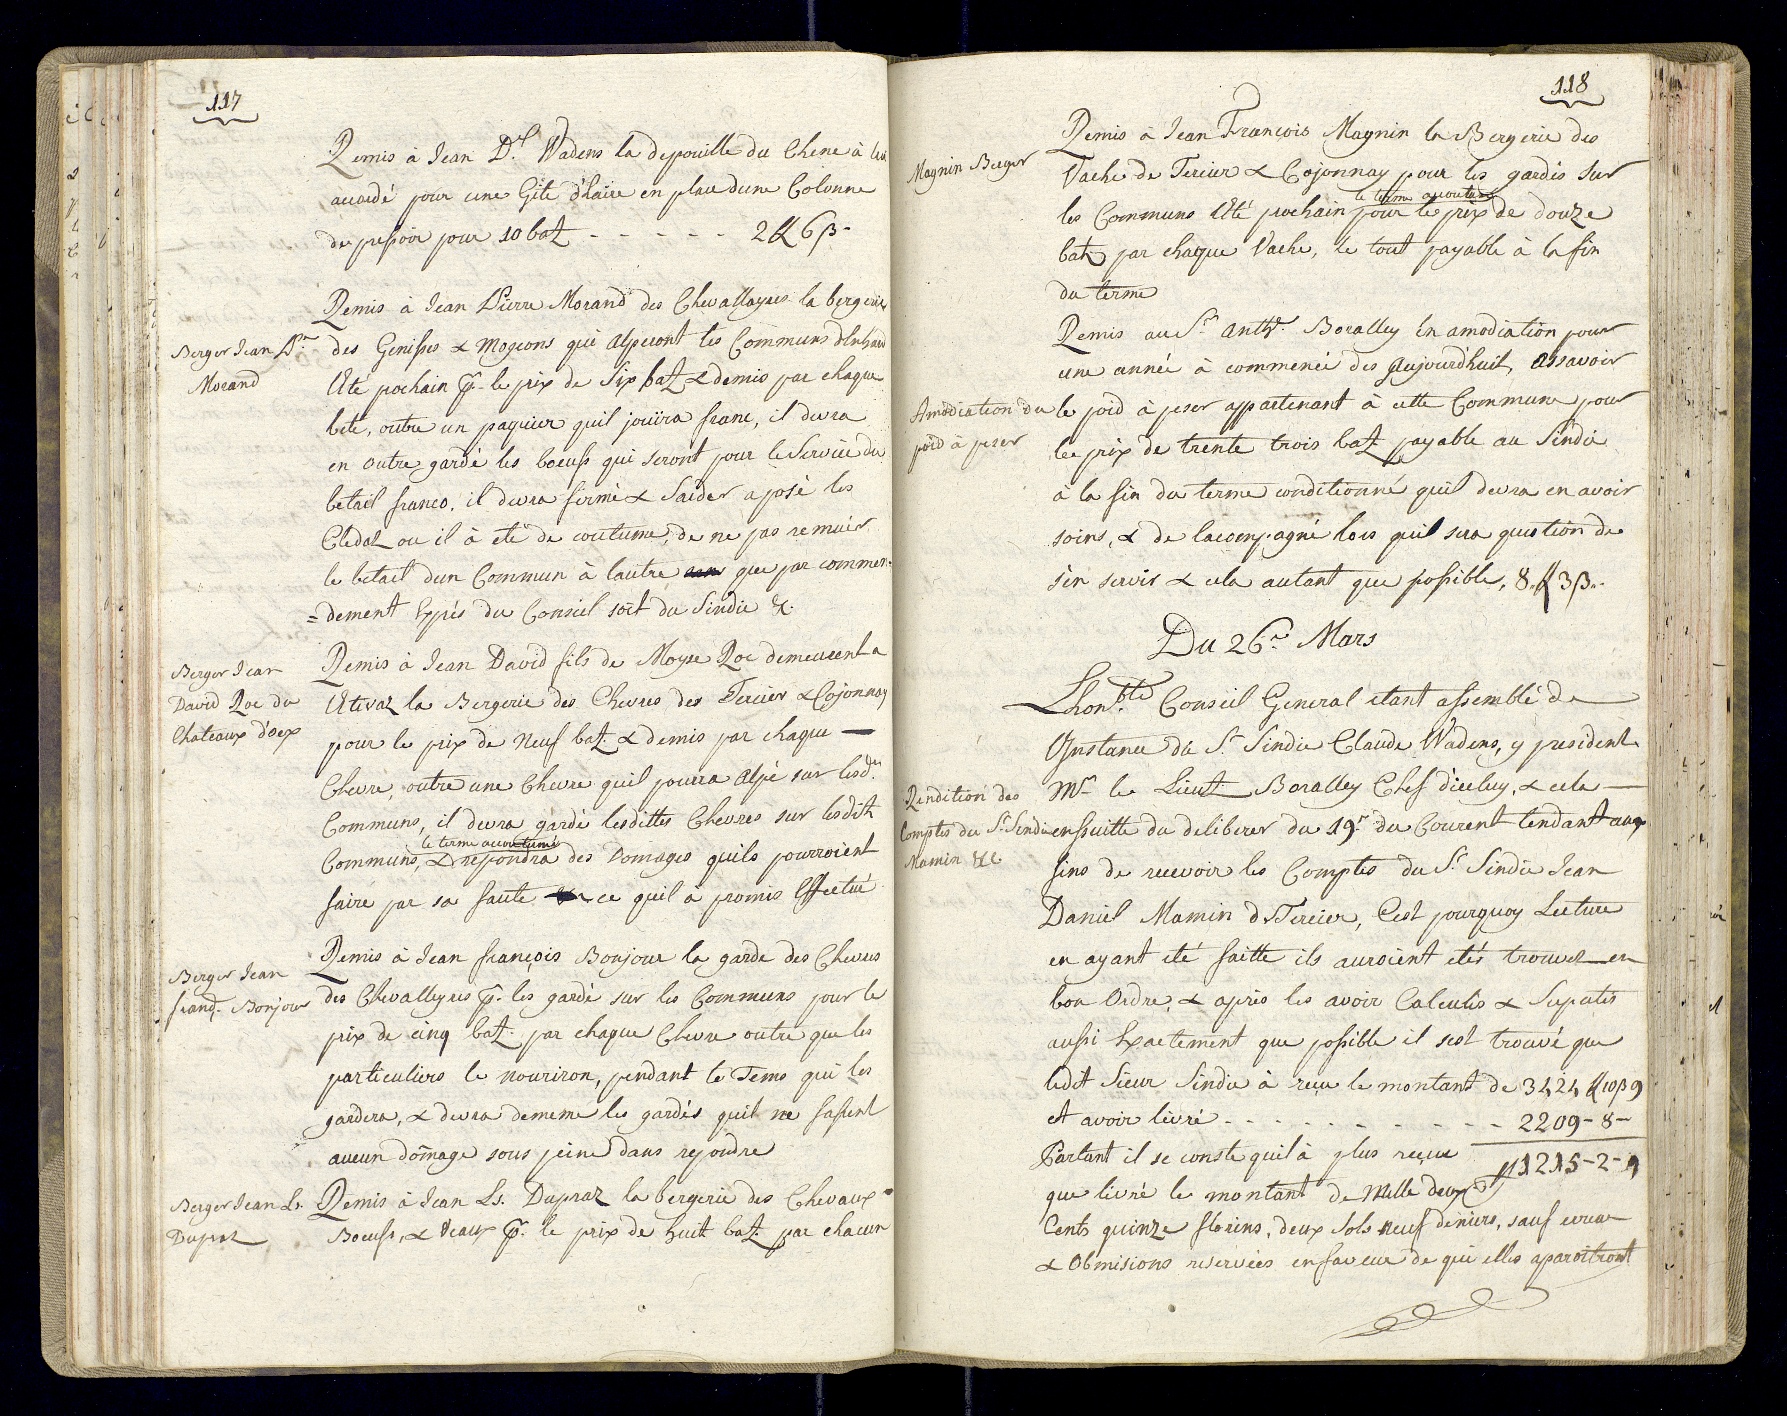 117
Remis à Jean D.l Wadens la depouille du Chene à lui
accordé pour une Gite d'haire en place dune Colonne
de pressoir pour 10 batz - - - - - 2ff 6ß.
Berger Jean P.re
Morand
Remis à Jean Pierre Morand des Chevalleyres la bergerie
des Genisses & Mogeons qui alperont les Communs d'Enhaut
Eté pochain pr. le prix de Six batz & demis par chaque
bete, outre un paquier quil jouira franc, il devra
en outre gardé les boeufs qui seront pour le Service du
betail franco, il devra fermé & Saider a posé les
Cledaz ou il à eté de coutume, de ne pas remuér
le betail dun Commun à lautre que par commen=
=dement Exprés du Conseil soit du Sindic &.
Berger Jean
David Roc du
Chateaux d'oex
Remis à Jean David fils de Moyse Roc demeurent a
Etivaz la Bergerie des Chevres des Tercier & Cojonnay
pour le prix de Neuf batz. & demis par chaque —
Chevre, outre une Chevre quil pourra Alpé sur lesd.ts
Communs, il devra gardé lesdittes Chevres sur lesdits
le terme acoutumé
Communs, & repondra des Domages quils pourroient
faire par sa faute ce quil à promis Effectué
Berger Jean
franç. Bonjour
Remis à Jean françois Bonjour la garde des Chevres
des Chevalleyres pr. les gardé sur les Communs pour le
prix de cinq batz. par chaque Chevre outre que les
particuliers le nouriron, pendant le Tems qui les
gardera, & devra dememe les gardés quil ne fassent
aucun dômage sous peine dans repondre
Berger Jean Ls.
Dupraz
Remis à Jean Ls. Dupraz la bergerie des Chevaux
Boeufs, & Veaux pr. le prix de huit batz. par chacun
118
Magnin Berger
Remis à Jean François Magnin la Bergerie des
Vache de Tercier & Cojonnay pour les gardés sur
le terme acoutumé
les Communs Eté prochain pour le prix de douze
batz par chaque Vache, le tout payable à la fin
du terme
Amodiation du
poid à peser
Remis au S.r Anth.e Boralley en amodiation pour
une année à commencé des Aujourdhuit, Assavoir
le poid à peser appartenant à cette Commune pour
le prix de trente trois batz payable au Sindic
à la fin du terme conditionné quil devra en avoir
soins, & de lacompagné lors quil sera question de
s'en servir & cela autant que possible, 8.ff 3ß..
Du 26.e Mars
Rendition des
Comptes du S.r Sindic
Mamin &c
Lhon.ble Conseil General etant assemblé de
Instance du S.r Sindic Claude Wadens, y president
Mr. le Lieut. Boralley Chef d'iceluy, & cela —
ensuitte du deliberer du 19.e du Courent tendant aux
fins de recevoir les Comptes du S.r Sindic Jean
Daniel Mamin d Tercier, Cest pourquoy Lecture
en ayant eté faitte ils auroient etés trouvez en
bon Ordre, & après les avoir Calculés & Suputés
aussi Exactement que possible il sest trouvé que
ledit Sieur Sindic à reçu le montant de 3424 ff 10ß 9
et avoir livré - - - - - - - - - - - 2209-8-
Partant il se conste quil à plus reçue ff 1215-2-9
que livré le montant de Mille deux
Cents quinze florins, deux Sols neuf deniers, sauf erreur
& Obmisions reservées en faveur de qui elles aparoitront